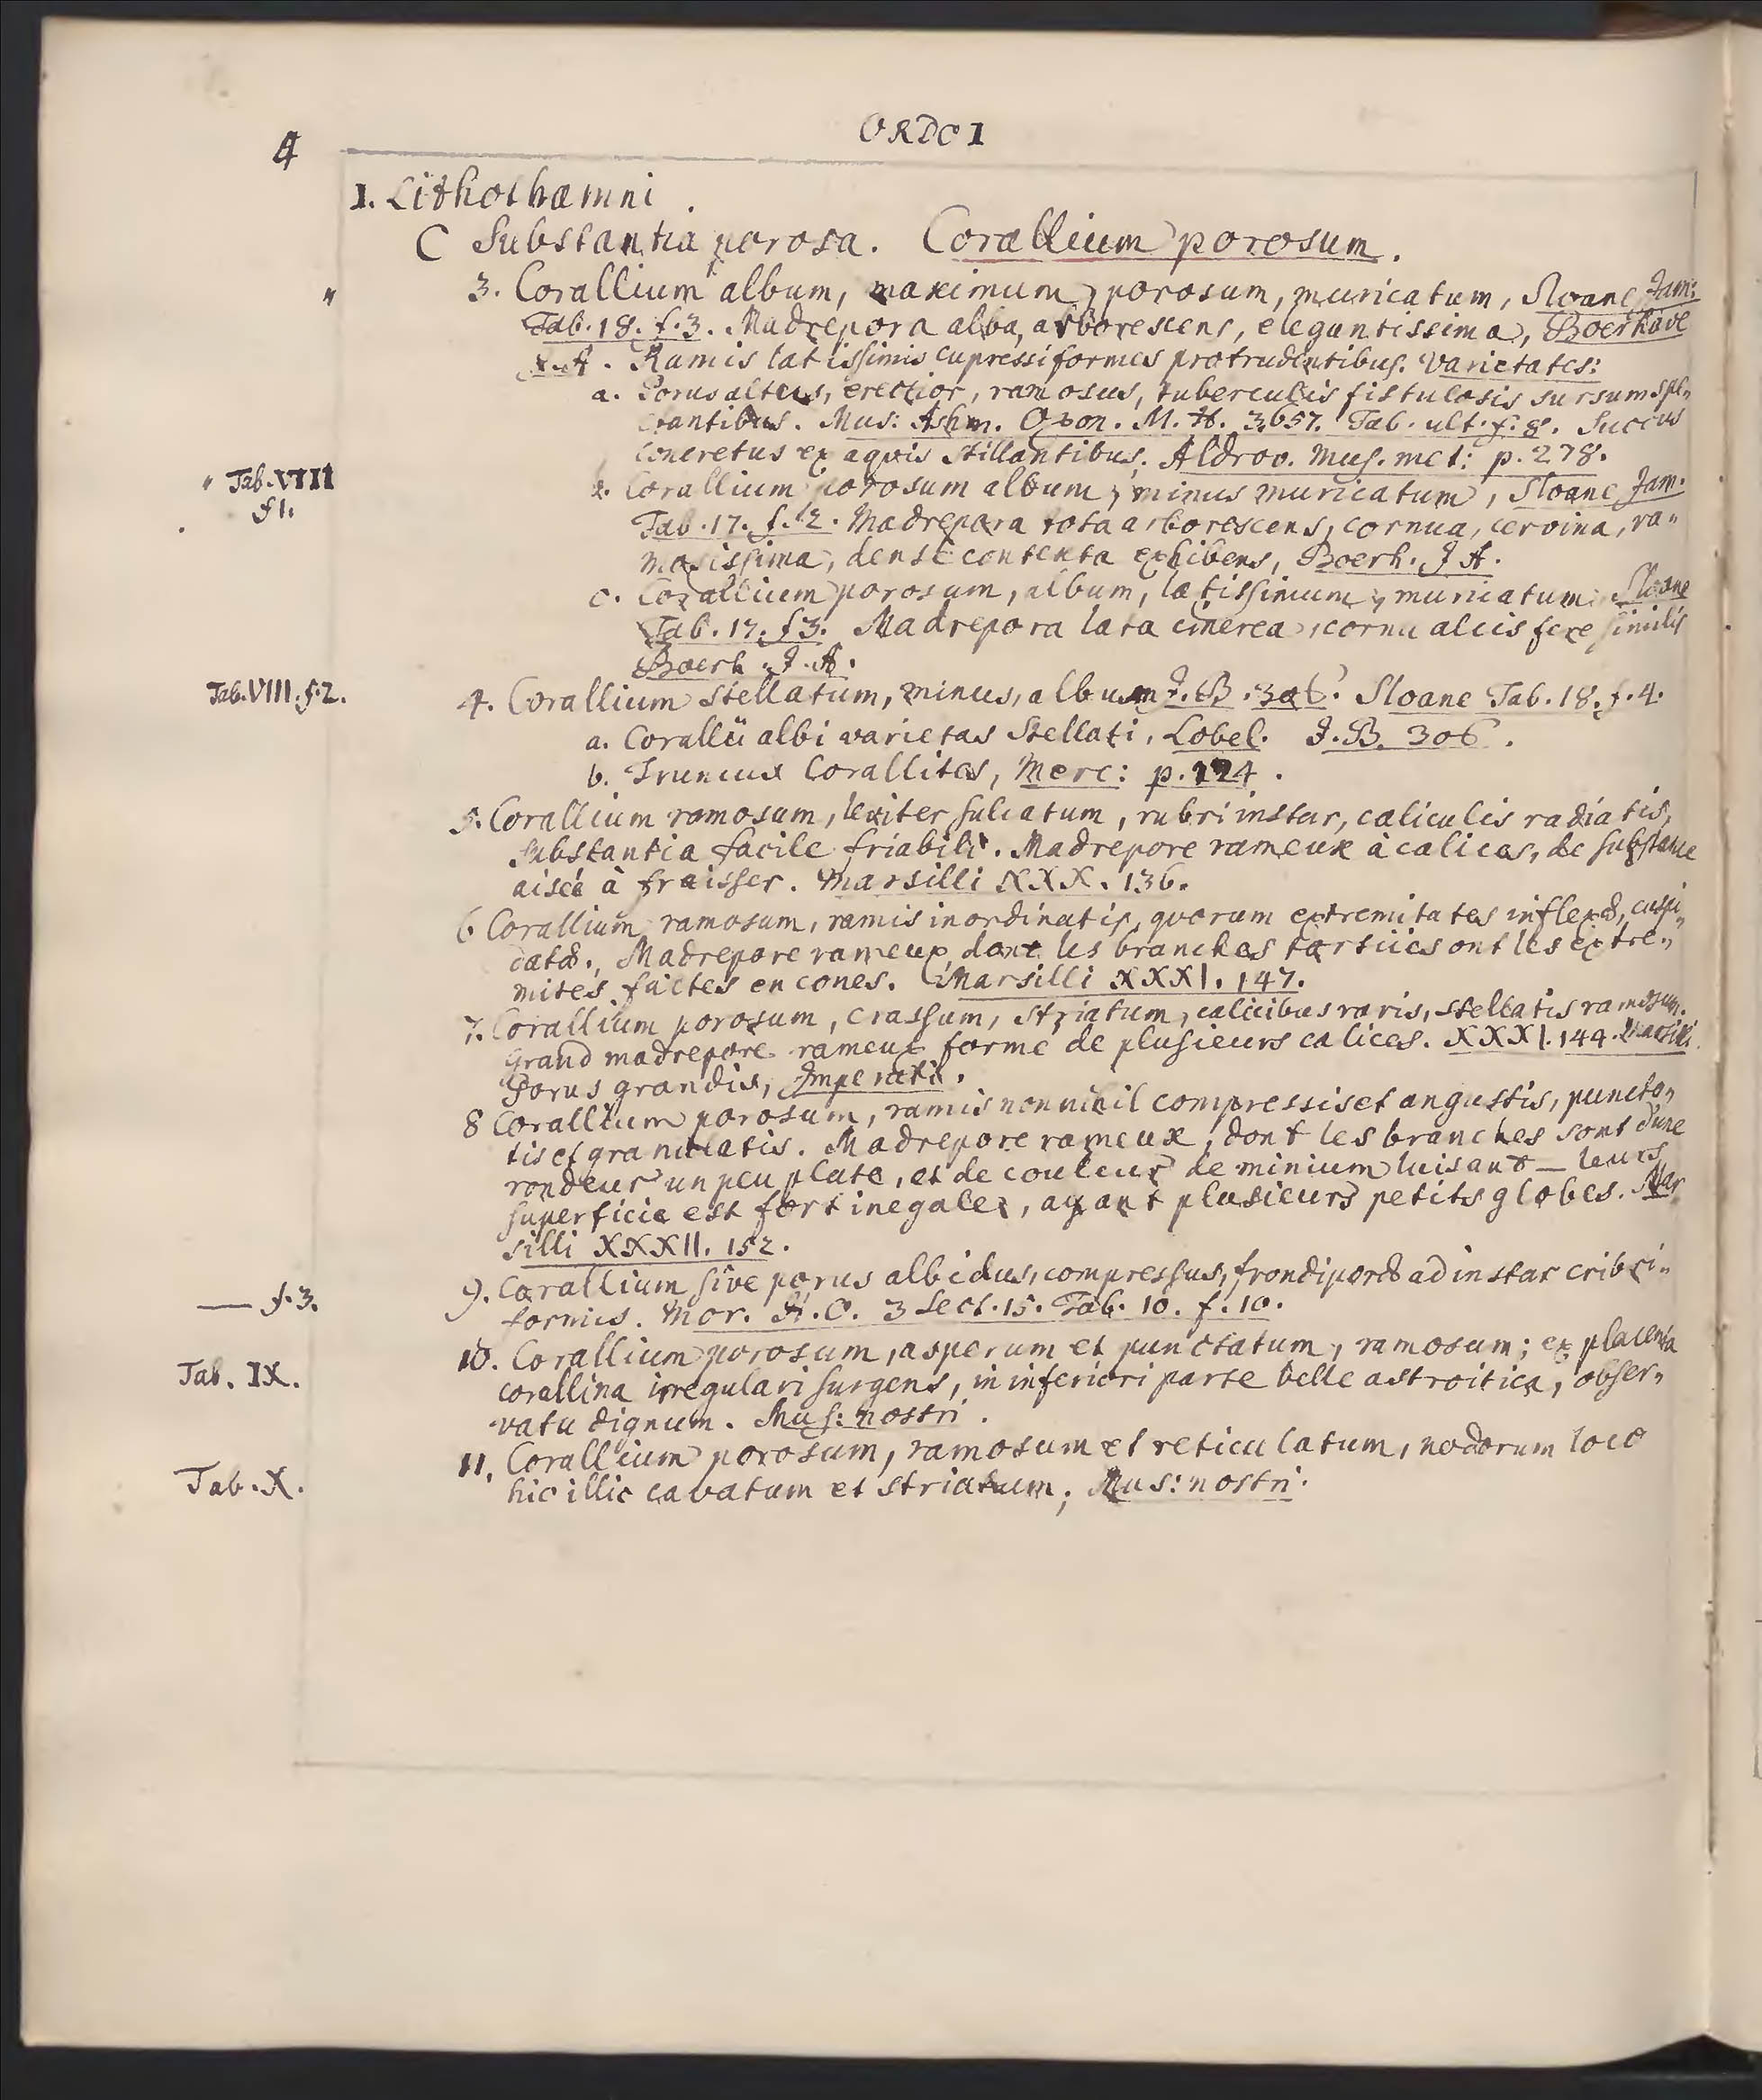 4
ORDO I
I. Lithothamni.
C Substantia porosa. Corallium porosum.
" 3. Corallium album, maximum, porosum, muricatum, Sloane Jam:
Tab. 18. f. 3. Madrepora alba, arborescens, elegantissima, Boerhave
J. A. Ramis latissimis cupressiformes protrudentibus. Varietates:
a. Porus altus, erectior, ramosus, tuberculis fistulosis sursum spe„
ctantibus. Mus: Ashm. Oxon. M. H. 3657. Tab. ult. f. 8. Succus
concretus ex aquis stillantibus. Aldrov. Mus. met: p. 278.
" Tab. VIII
f 1.
b. Corallium porosum album, minus muricatum, Sloane Jam.
Tab. 17. f. 2. Madrepora tota arborescens, cornua, cervina, ra„
mosissima, dense contexta exhibens, Boerh. J A.
c. Corallium porosum, album, latissimum, muricatum Sloane
Tab. 17. f 3. Madrepora lata cinerea, cornu alcis fere similis
Boerh. J. A.
Tab. VIII. f. 2. 4. Corallium stellatum, minus, album J. B. 306. Sloane Tab. 18. f. 4.
a. Corallii albi varietas Stellati, Lobel. J. B. 306.
b. Truncus Corallites, Merc: p. 124.
5. Corallium ramosum, leviter sulcatum, rubri instar, caliculis radiatis,
substantia facile friabili. Madrepore rameux à calices, de substance
aisée à fraisser. Marsilli XXX. 136.
6 Corallium ramosum, ramis inordinatis, quorum extremitates inflexæ, cuspi„
datæ. Madrepore rameux, dont les branches tortües ont les extre„
mites faites en cones. Marsilli XXXI. 147.
7. Corallium porosum, crassum, striatum, calicibus raris, stellatis ramosum.
Grand madrepore rameux forme de plusieurs calices. XXXI. 144. Marsilli.
Porus grandis, Imperati.
8 Corallium porosum, ramis nonnihil compressis et angustis, puncta„
tis et granulatis. Madrepore rameux, dont les branches sont d'une
rondeur un peu plate, et de couleur de minium luisant — leurs
superficie est fort inegales, ayant plusieurs petits globes. Mar
silli XXXII. 152.
— f. 3. 9. Corallium sive porus albidus, compressus, frondiporæ ad instar cribri„
formis. Mor. H. O. 3 Sect. 15. Tab. 10. f. 10.
Tab. IX. 10. Corallium porosum, asperum et punctatum, ramosum; ex placenta
corallina irregulari surgens, in inferiori parte belle astroitica, obser„
vatu dignum. Mus: nostri.
Tab. X. 11. Corallium porosum, ramosum et reticulatum, nodorum loco
hic illic cavatum et striatum; Mus: nostri.